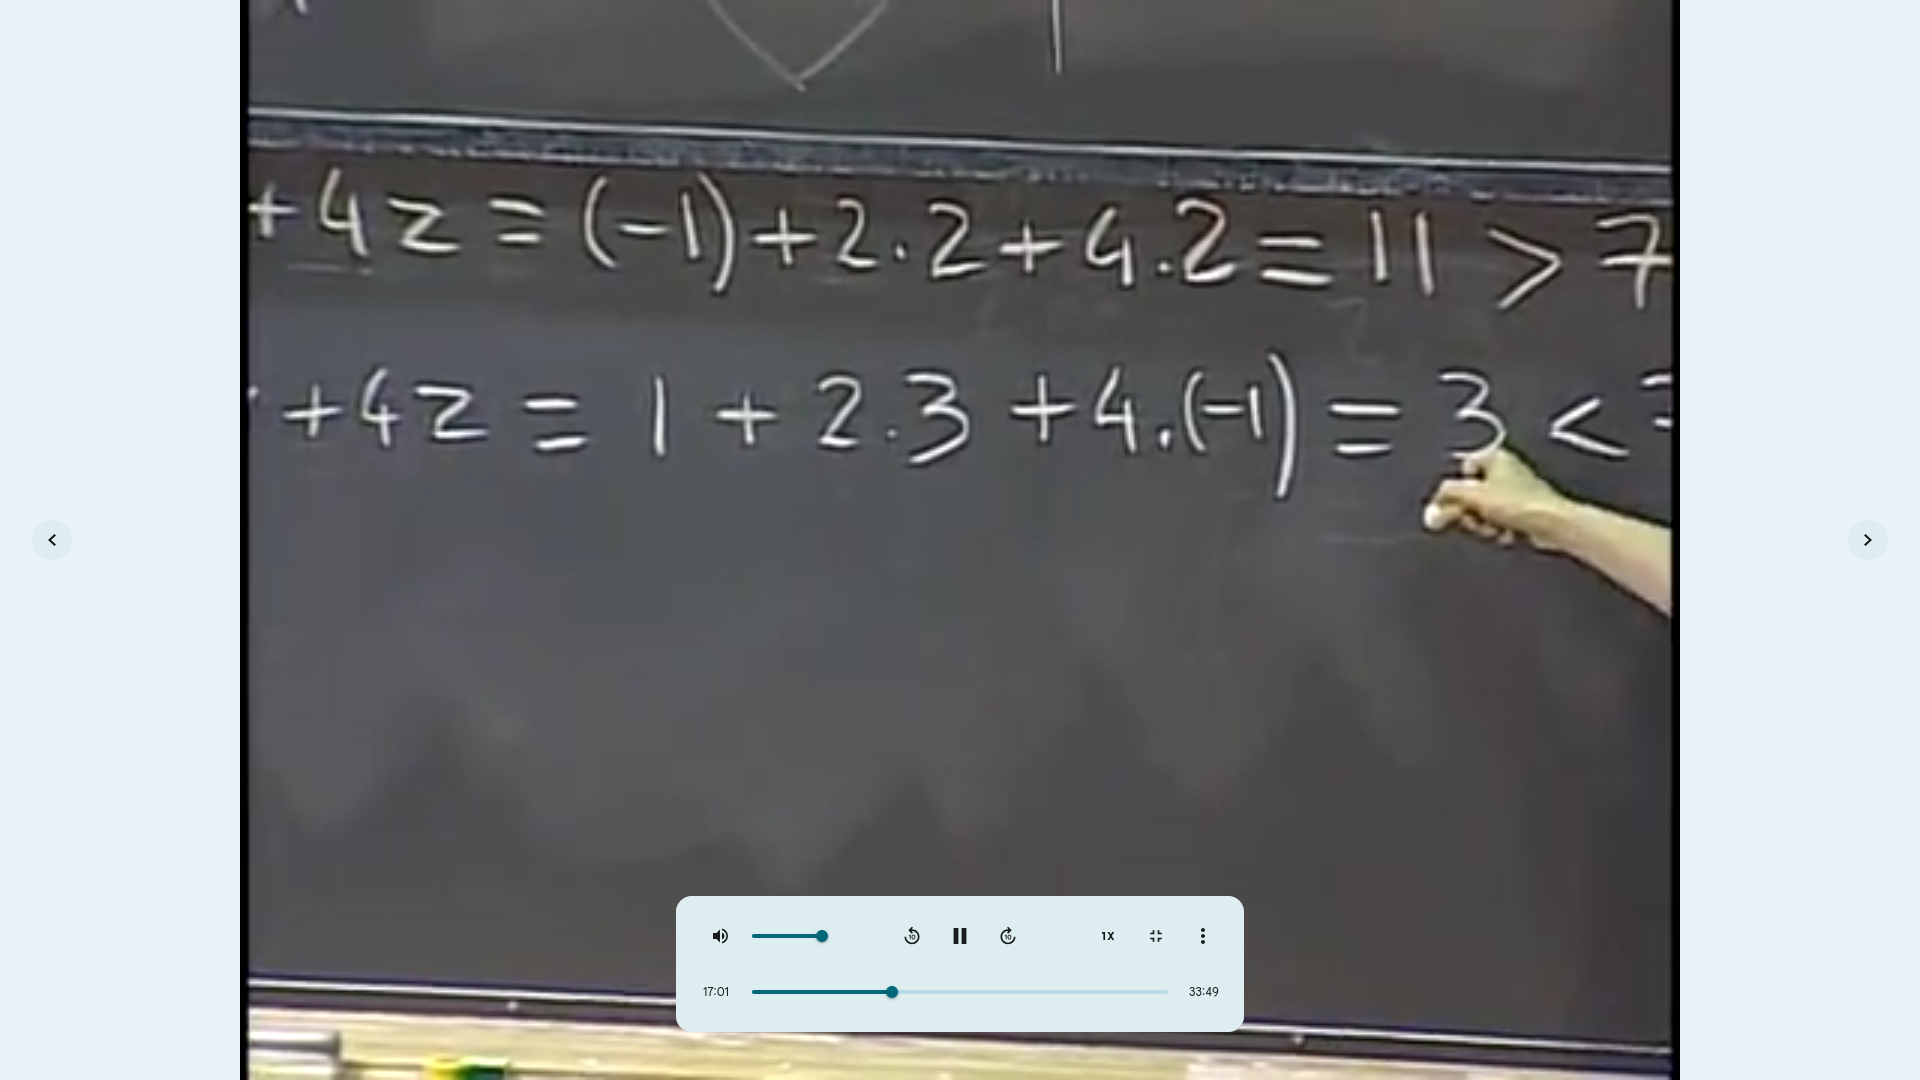 +4z = (-1)+2.2+4.2 = 11 > 7
+4z = 1 + 2.3 +4.(-1) = 3 <
10
10
1X
17:01
33:49